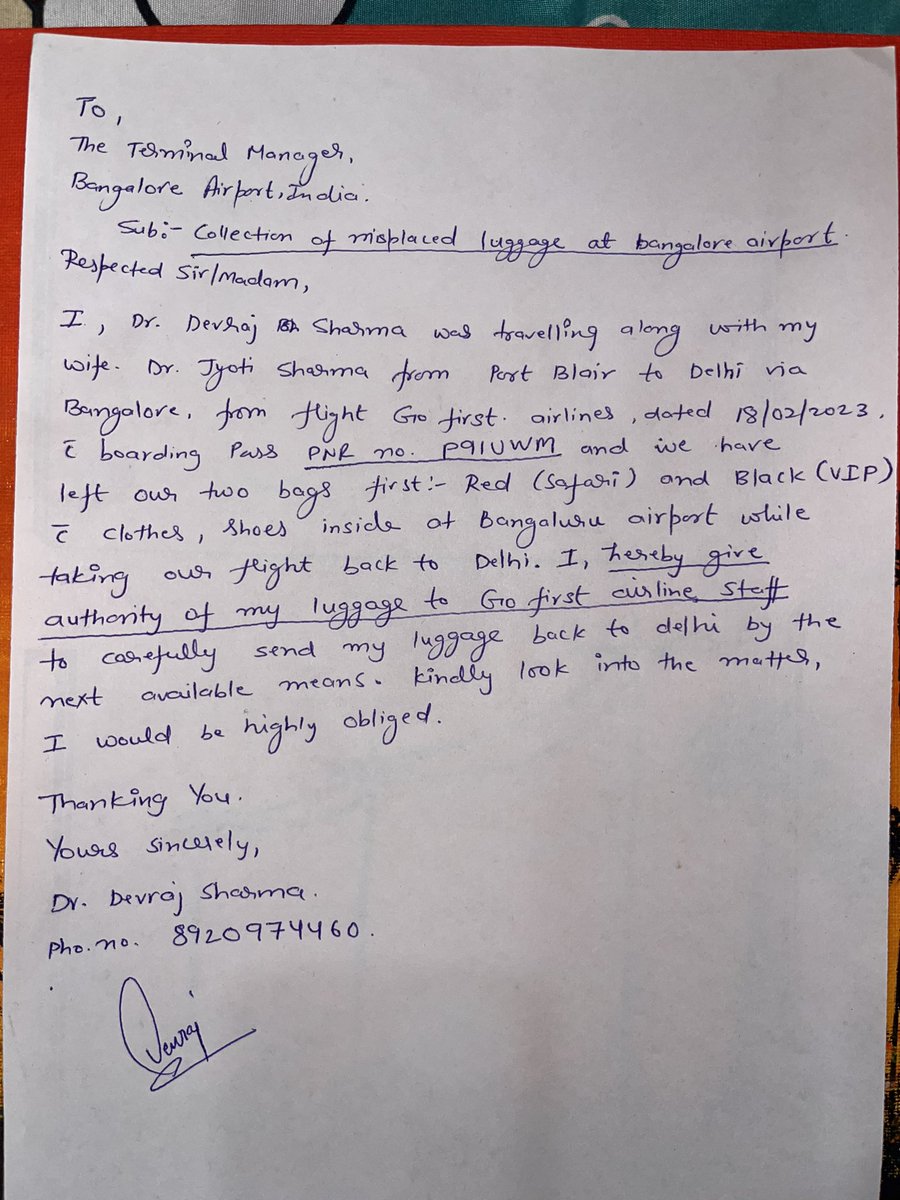 To,
The Terminal Manager,
Bangalore Airport, India.
Sub:- Collection of misplaced luggage at bangalore airport.
Respected Sir/Madam,
I, Dr. Devraj Sharma was travelling along with my
wife. Dr. Jyoti Sharma from Port Blair to Delhi via
Bangalore, from flight Go first. airlines, dated 18/02/2023.
c̄ boarding Pass PNR no. P91UWM and we have
left our two bags first:- Red (Safari) and Black (VIP)
c̄ clothes, shoes inside at Bangaluru airport while
taking our flight back to Delhi. I, hereby give
authority of my luggage to Go first airline staff
to carefully send my luggage back to delhi by the
next available means. Kindly look into the matter,
I would be highly obliged.
Thanking You.
Yours sincerely,
Dr. Devraj Sharma.
Pho. no. 8920974460.
Devraj